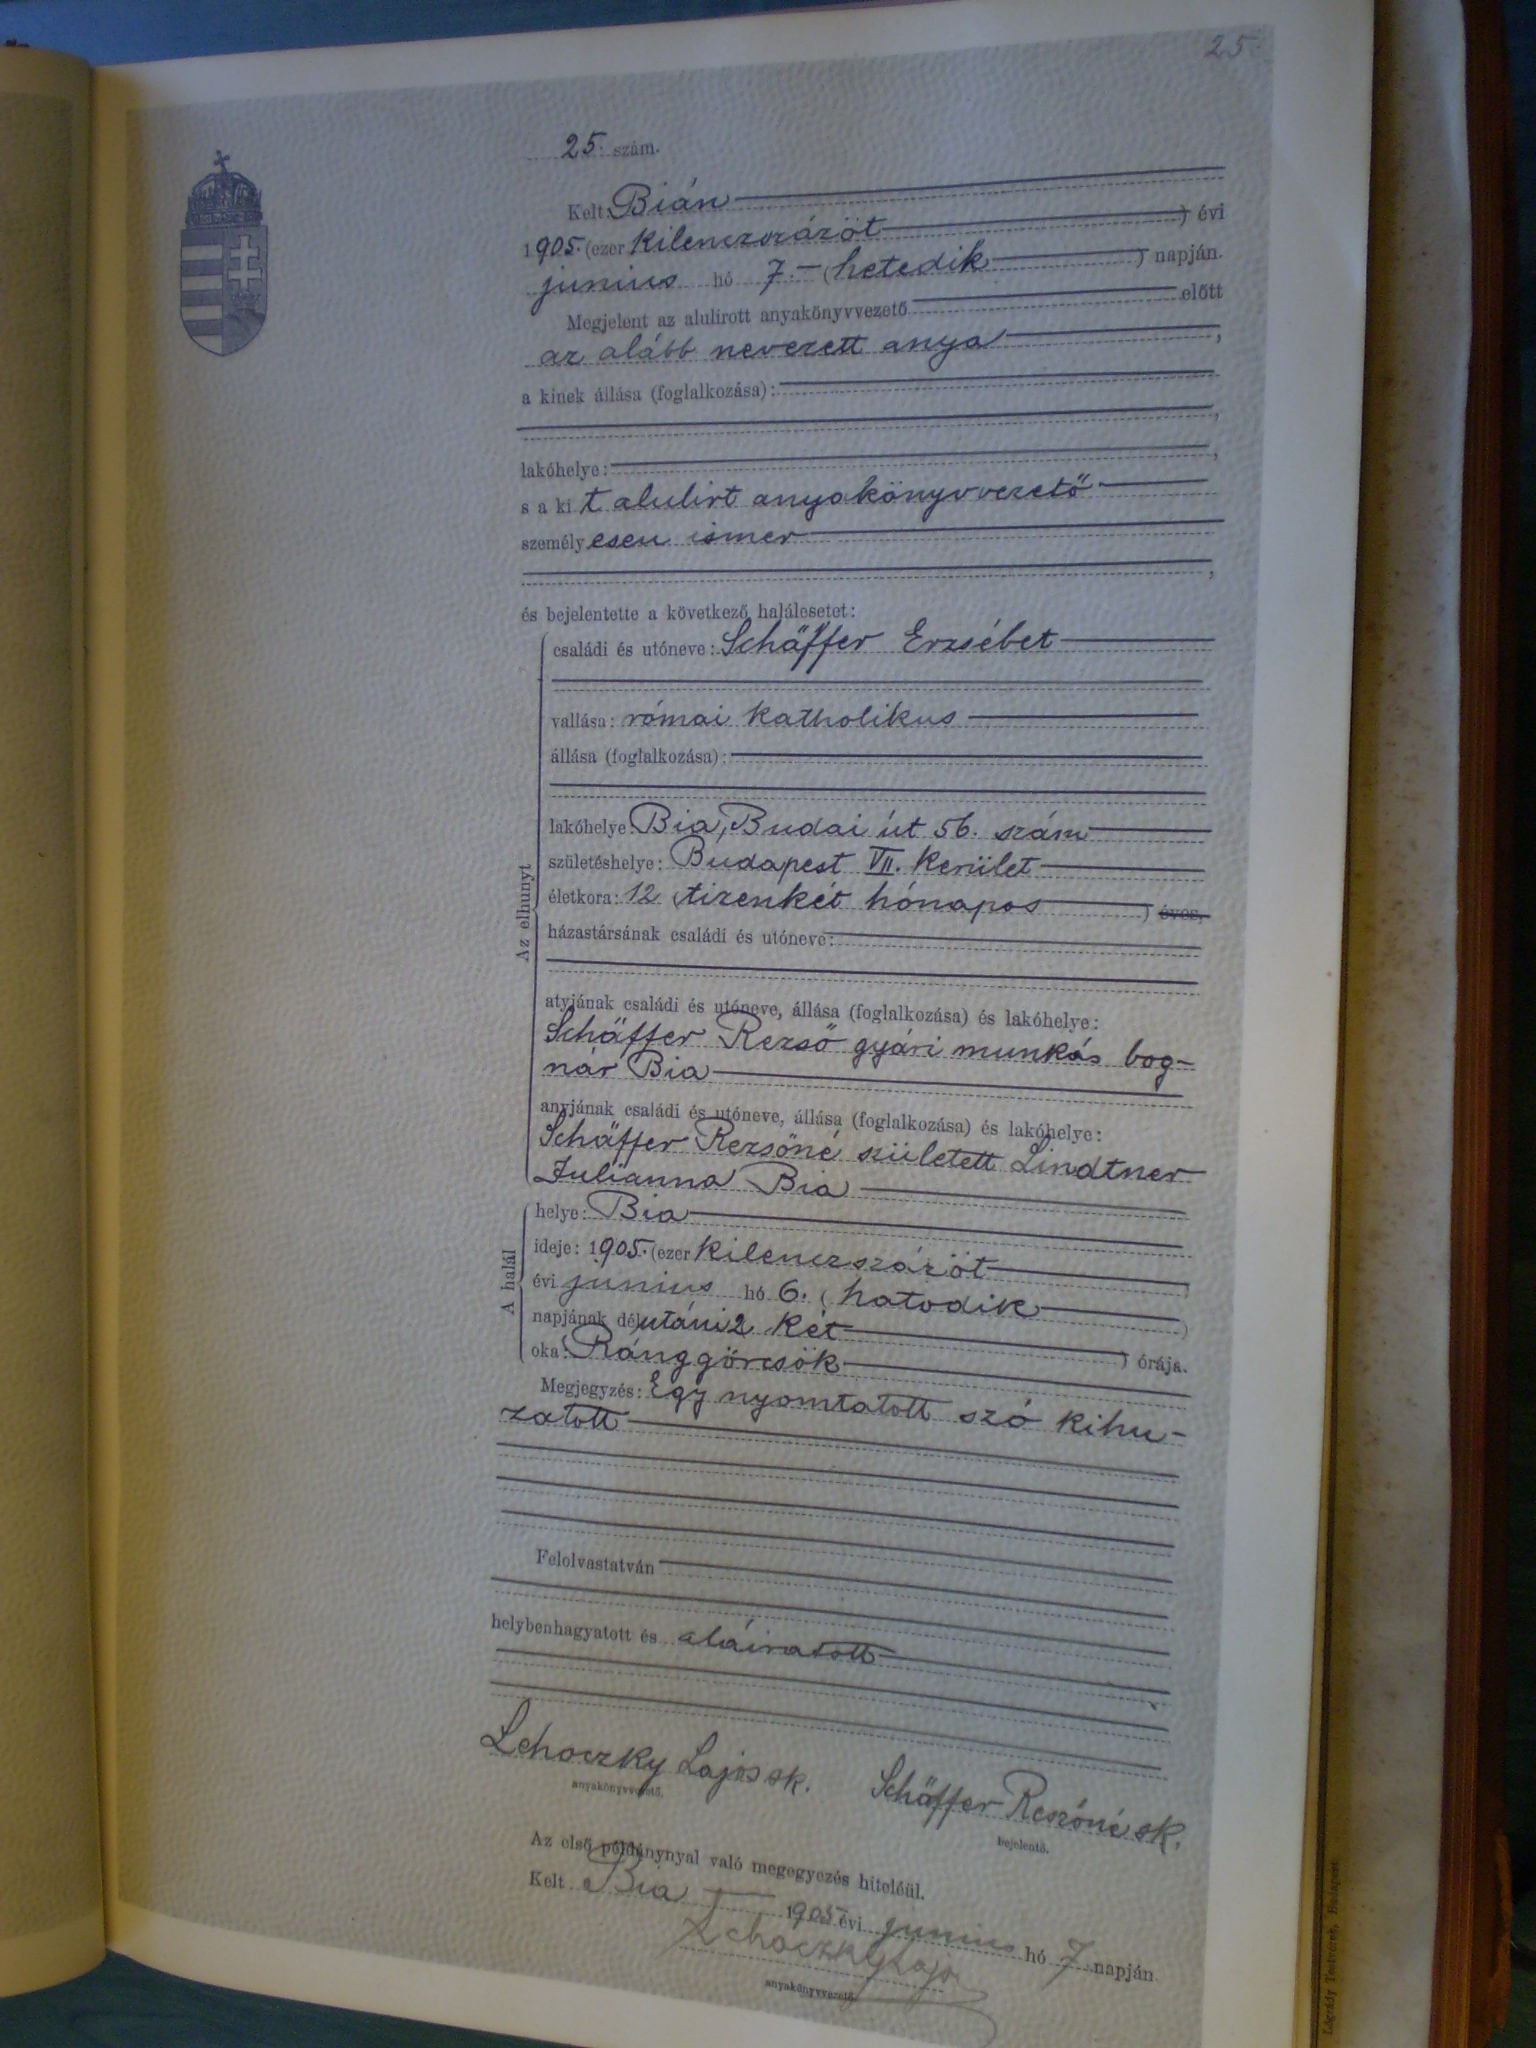 25
25. szám.
Kelt: Bián
1905. (ezer kilenczszázöt) évi
junius hó 7. (hetedik) napján.
Megjelent az alulirott anyakönyvvezető előtt
az alább nevezett anya,
a kinek állása (foglalkozása):
,
lakóhelye: ,
s a kit alulirt anyakönyvvezető
személyesen ismer
,
és bejelentette a következő halálesetet:
Az elhunyt
családi és utóneve: Schäffer Erzsébet
vallása: római katholikus
állása (foglalkozása):
lakóhelye: Bia, Budai út 56. szám
születéshelye: Budapest VII. kerület
életkora: 12 (tizenkét hónapos) éves.
házastársának családi és utóneve:
atyjának családi és utóneve, állása (foglalkozása) és lakóhelye:
Schäffer Rezső gyári munkás bog-
nár Bia
anyjának családi és utóneve, állása (foglalkozása) és lakóhelye:
Schäffer Rezsőné született Lindtner
Julianna Bia
A halál
helye: Bia
ideje: 1905. (ezer kilenczszázöt)
évi junius hó 6. (hatodik)
napjának délutáni 2 két) órája.
oka: Ránggörcsök
Megjegyzés: Egy nyomtatott szó kihu-
zatott
Felolvastatván
helybenhagyatott és aláiratott
Lehoczky Lajos sk. Schäffer Rezsőné sk.
anyakönyvvezető. bejelentő.
Az első példánynyal való megegyezés hiteléül.
Kelt Bia 1905 évi junius hó 7 napján
Lehoczky Lajos
anyakönyvvezető.
Légrády Testvérek, Budapest